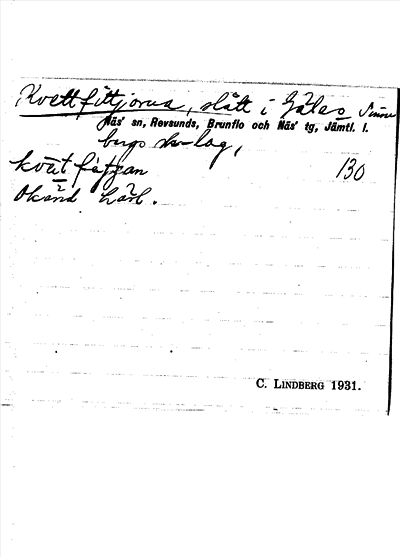 Kvettfittjorna, slått i Gåles o Sunne
Näs' sn, Revsunds, Brunflo och Näs' tg, Jämtl. l.
bergs skr-lag,
130
Okänd härl.
C. LINDBERG 1931.